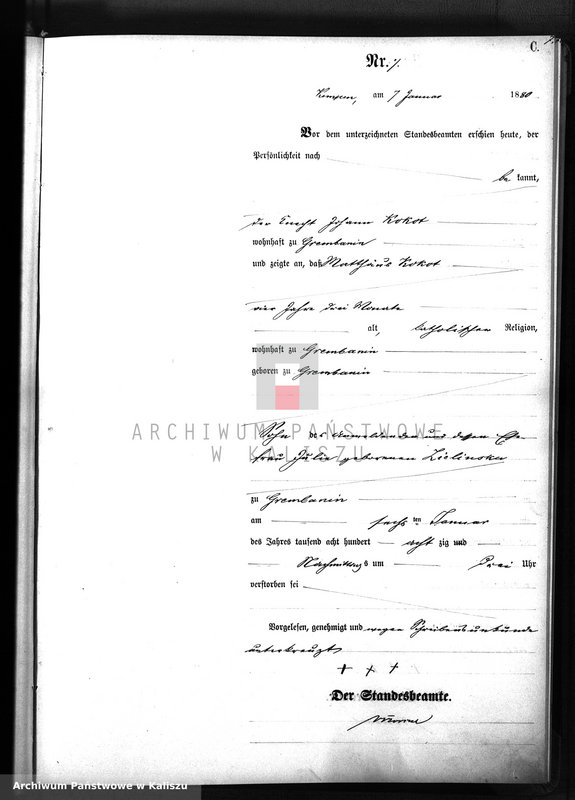 C.
Nr. 7.
Kempen, am 7 Januar 1880
Vor dem unterzeichneten Standesbeamten erschien heute, der
Persönlichkeit nach
be kannt,
der Knecht Johann Kokot
wohnhaft zu Grembanin
und zeigte an, daß Matthäus Kokot
vier Jahre drei Monate
alt, katholischer Religion,
wohnhaft zu Grembanin
geboren zu Grembanin
Sohn des Anmeldenden und dessen Ehe-
frau Julie geborenen Zielinska
zu Grembanin
am sechs ten Januar
des Jahres tausend acht hundert acht zig und
Nachmittags um drei Uhr
verstorben sei
Vorgelesen, genehmigt und wegen Schreibensunkunde
unterkreuzt
+ + +
Der Standesbeamte.
ARCHIWUM PAŃSTWOWE
W KALISZU
Archiwum Państwowe w Kaliszu